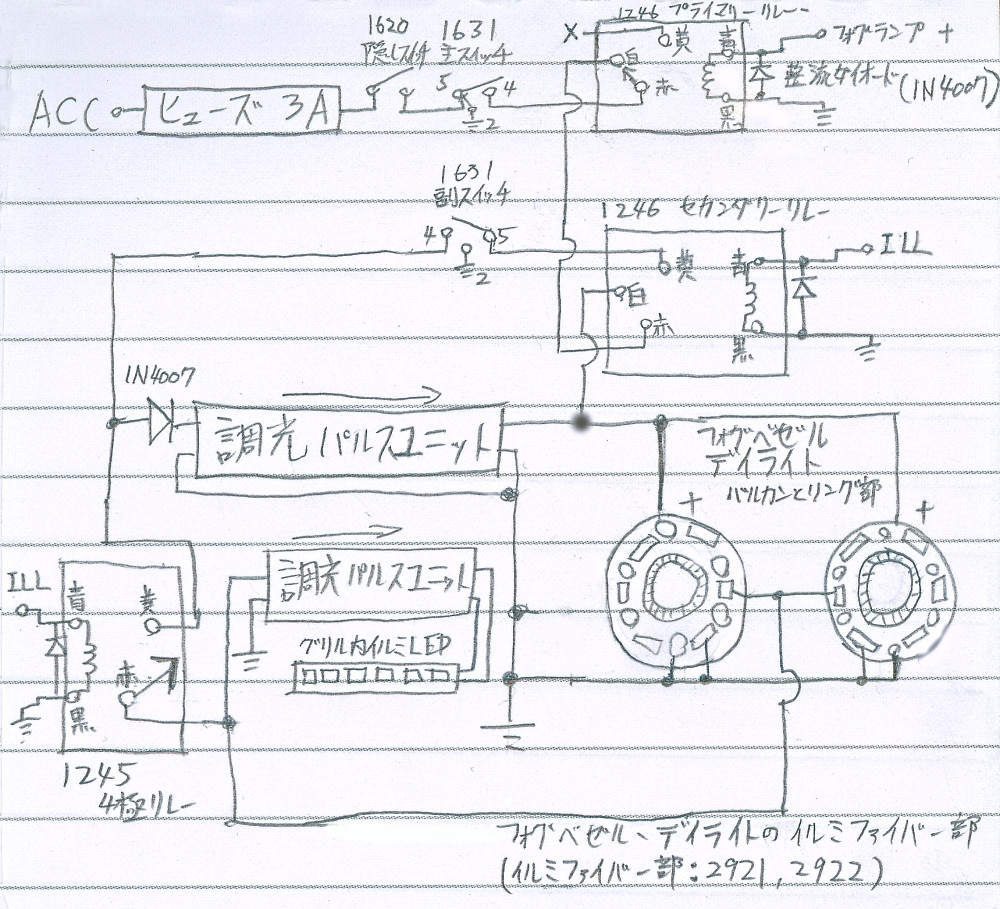 1246 プライマリーリレー
1620
隠しスイッチ
1631
主スイッチ
X
黄
青
白
赤
黒
フォグランプ +
整流ダイオード(1N4007)
ACC
ヒューズ 3A
5
4
2
1631
副スイッチ
4
5
2
1246 セカンダリーリレー
黄
青
白
赤
黒
ILL
1N4007
調光パルスユニット
フォグベゼル
デイライト
バルカンとリング部
+
+
ILL
青
黄
赤
黒
調光パルスユニット
グリル内イルミLED
1245
4極リレー
フォグベゼル、デイライトのイルミファイバー部
(イルミファイバー部:2921,2922)